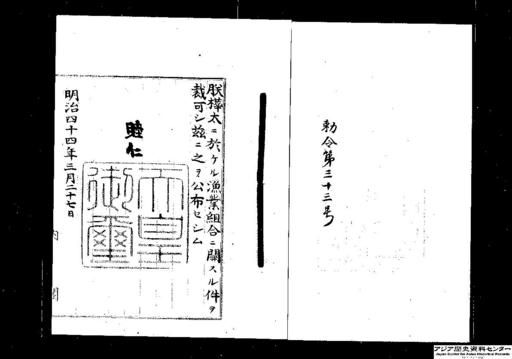 勅令第三十三号
朕樺太ニ於ケル漁業組合ニ關スル件ヲ
裁可シ茲ニ之ヲ公布セシム
睦仁
天皇
御璽
明治四十四年三月二十七日
内閣
アジア歴史資料センター
Japan Center for Asian Historical Records